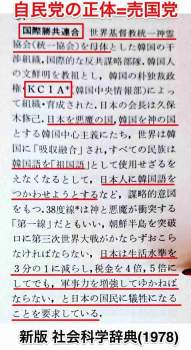 自民党の正体=売国党
国際勝共連合 世界基督教統一神霊
協会(統一協会)を母体とした韓国の干
渉組織, 国際的な反共謀略部隊. 韓国人
の文鮮明を教祖とし, 韓国の朴独裁政
権(KCIA*, 韓国中央情報部)によっ
て組織・育成された. 日本の会長は久保
木修己. 日本を悪魔の国, 韓国を神の国
とする韓国中心主義にたち, 世界は韓国
に「吸収合」され, すべての民族は
韓国語を「祖国語」として使用せざるを
えなくなるとして, 日本人に韓国語を
つかわせようとするなど, 謀略的意図
をもつ. 38度線*は神と悪魔が衝突する
「第一線」だともいい, 朝鮮半島を突破
口に第三次世界大戦がかならずおこら
なければならない, 日本は生活水準を
3分の1に減らし, 税金を4倍, 5倍に
してでも, 軍事力を増強してゆかねば
ならない, と日本の国民に犠牲になる
ことを要求している.
新版 社会科学辞典(1978)